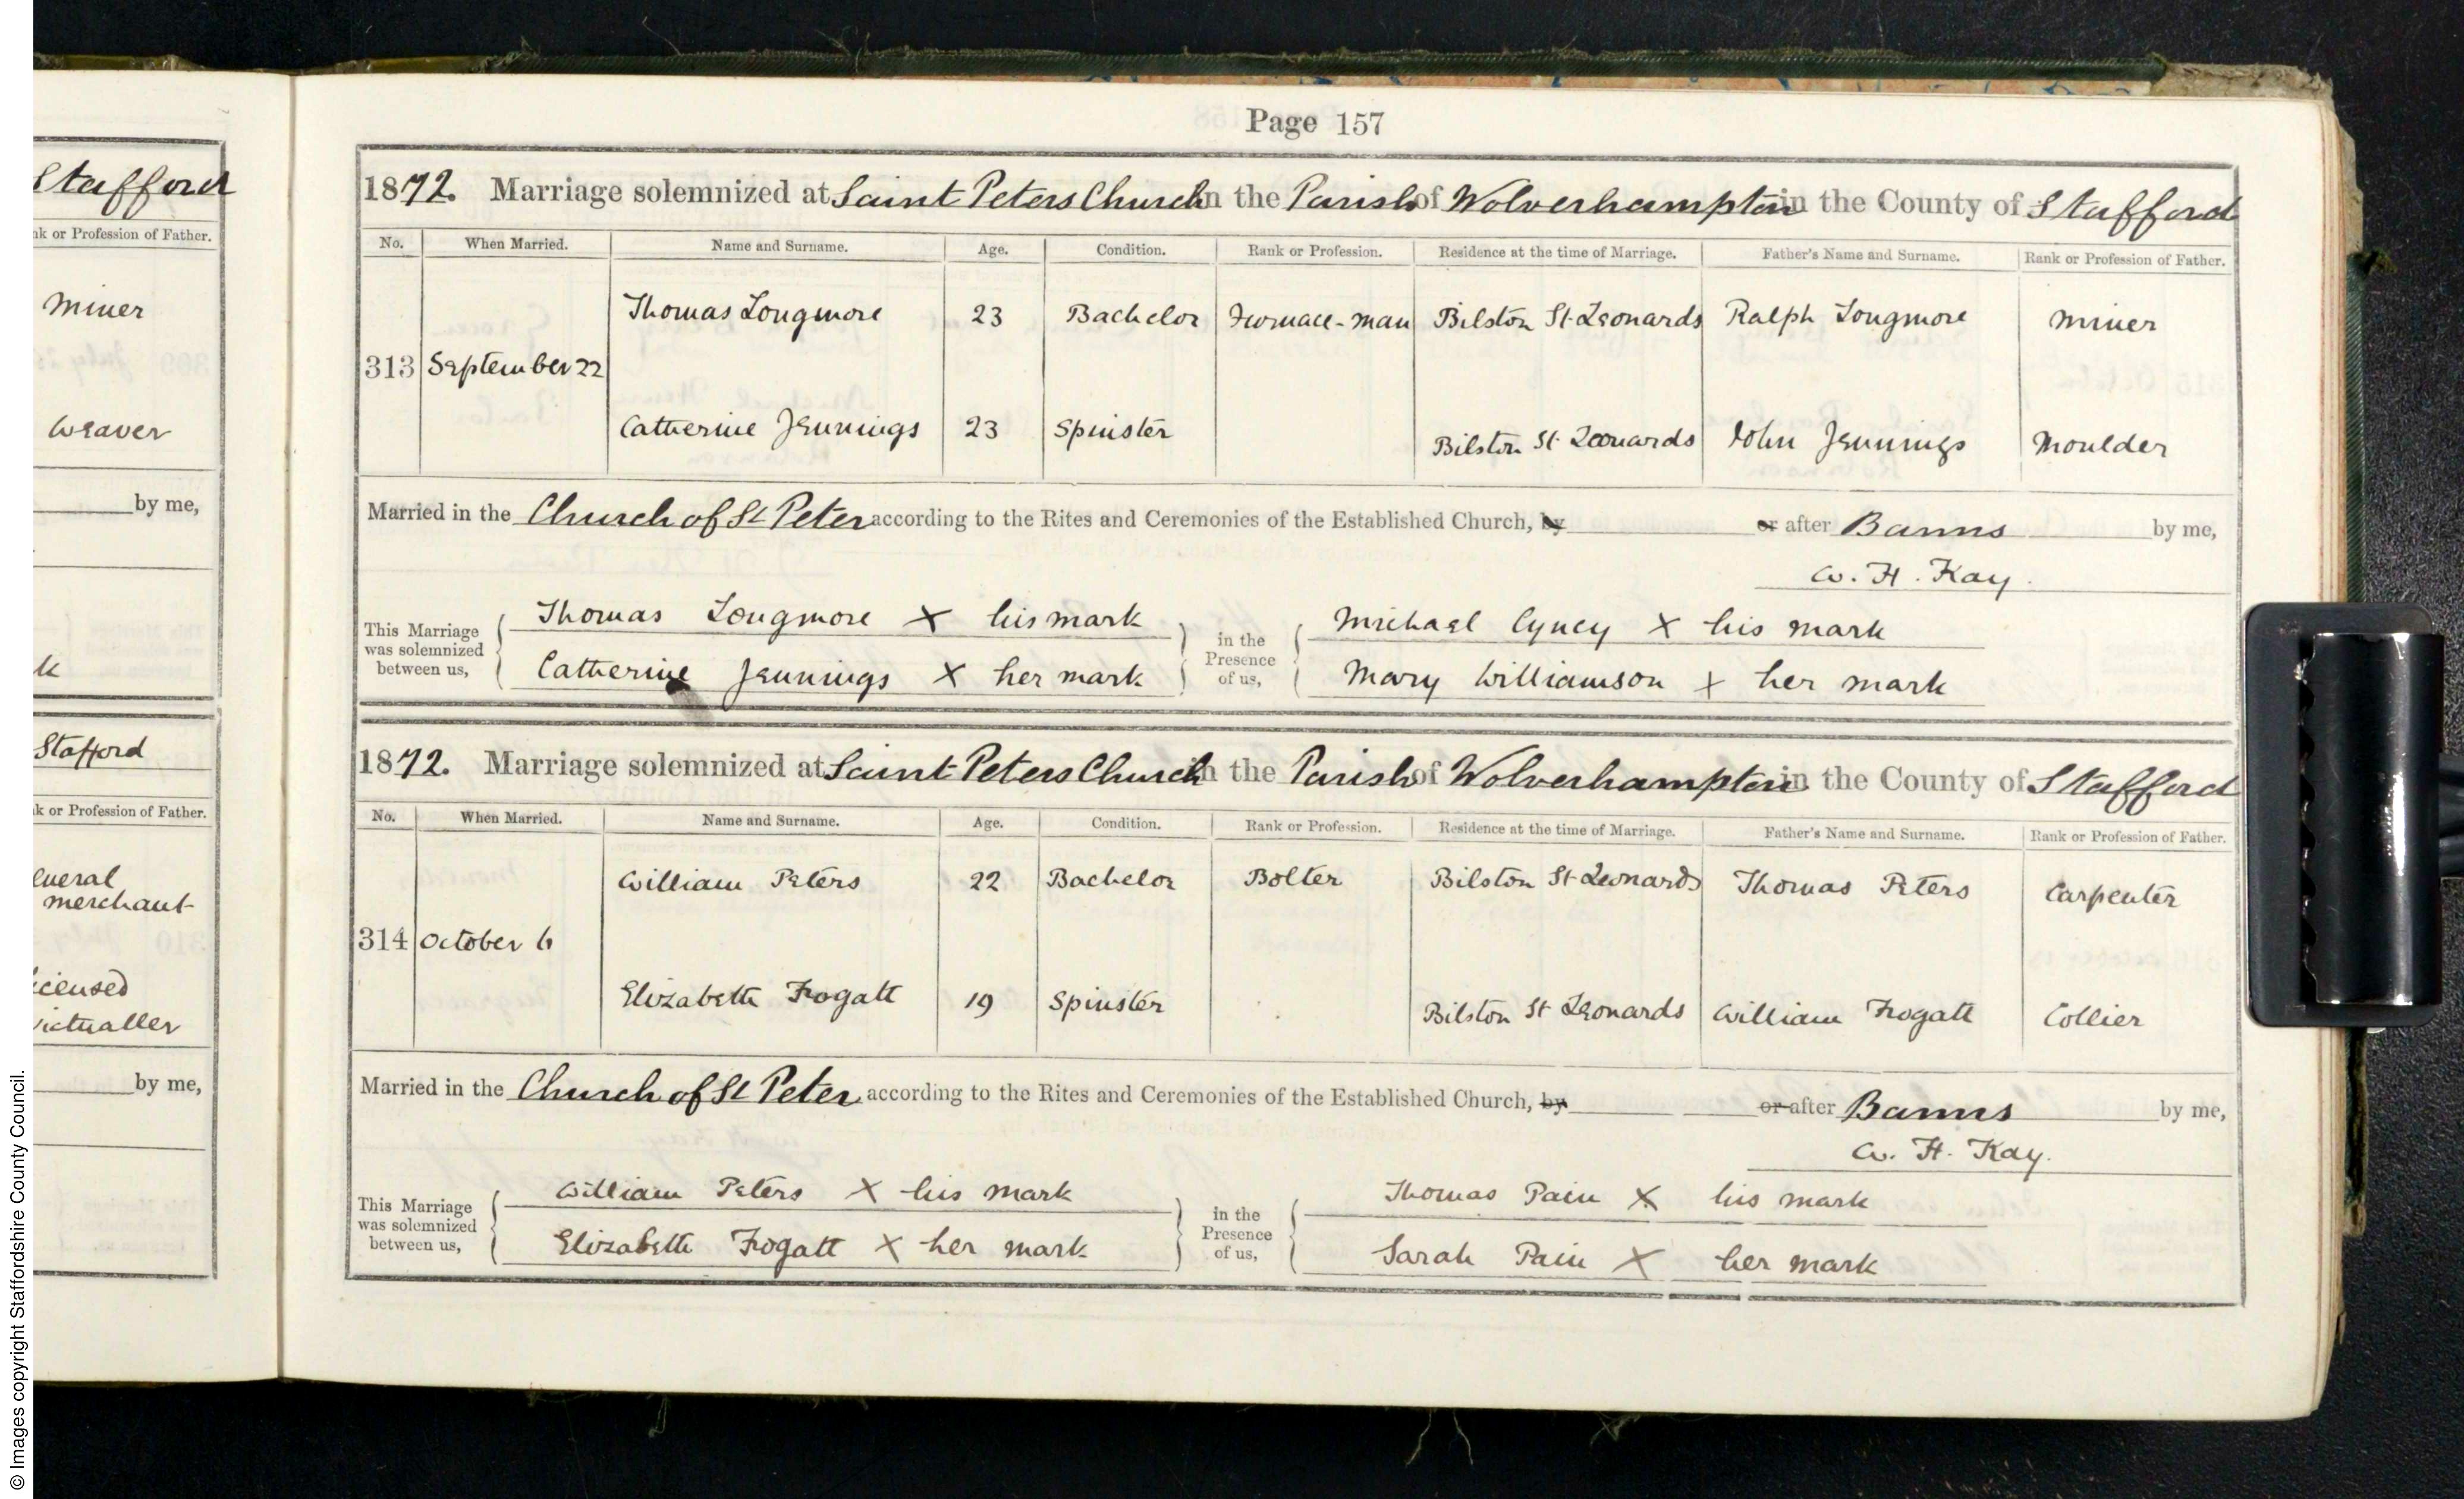 Stafford
nk or Profession of Father.
Miner
Weaver
by me,
k
Stafford
nk or Profession of Father.
eneral
merchant
icensed
victualler
by me,
Page 157
1872. Marriage solemnized at Saint Peters Church in the Parish of Wolverhampton in the County of Stafford
No. When Married. Name and Surname. Age. Condition. Rank or Profession. Residence at the time of Marriage. Father's Name and Surname. Rank or Profession of Father.
Thomas Longmore 23 Bachelor Furnace-man Bilston St Leonards Ralph Longmore Miner
313 September 22
Catherine Jennings 23 Spinster Bilston St Leonards John Jennings Moulder
Married in the Church of St Peter according to the Rites and Ceremonies of the Established Church, by or after Banns by me,
W. H. Kay.
This Marriage was solemnized between us, Thomas Longmore X his mark in the Presence of us, Michael Cyney X his mark
Catherine Jennings X her mark Mary Williamson X her mark
1872. Marriage solemnized at Saint Peters Church in the Parish of Wolverhampton in the County of Stafford
No. When Married. Name and Surname. Age. Condition. Rank or Profession. Residence at the time of Marriage. Father's Name and Surname. Rank or Profession of Father.
William Peters 22 Bachelor Bolter Bilston St Leonards Thomas Peters Carpenter
314 October 6
Elizabeth Frogatt 19 Spinster Bilston St Leonards William Frogatt Collier
Married in the Church of St Peter according to the Rites and Ceremonies of the Established Church, by or after Banns by me,
W. H. Kay.
This Marriage was solemnized between us, William Peters X his mark in the Presence of us, Thomas Pain X his mark
Elizabeth Frogatt X her mark Sarah Pain X her mark
© Images copyright Staffordshire County Council.